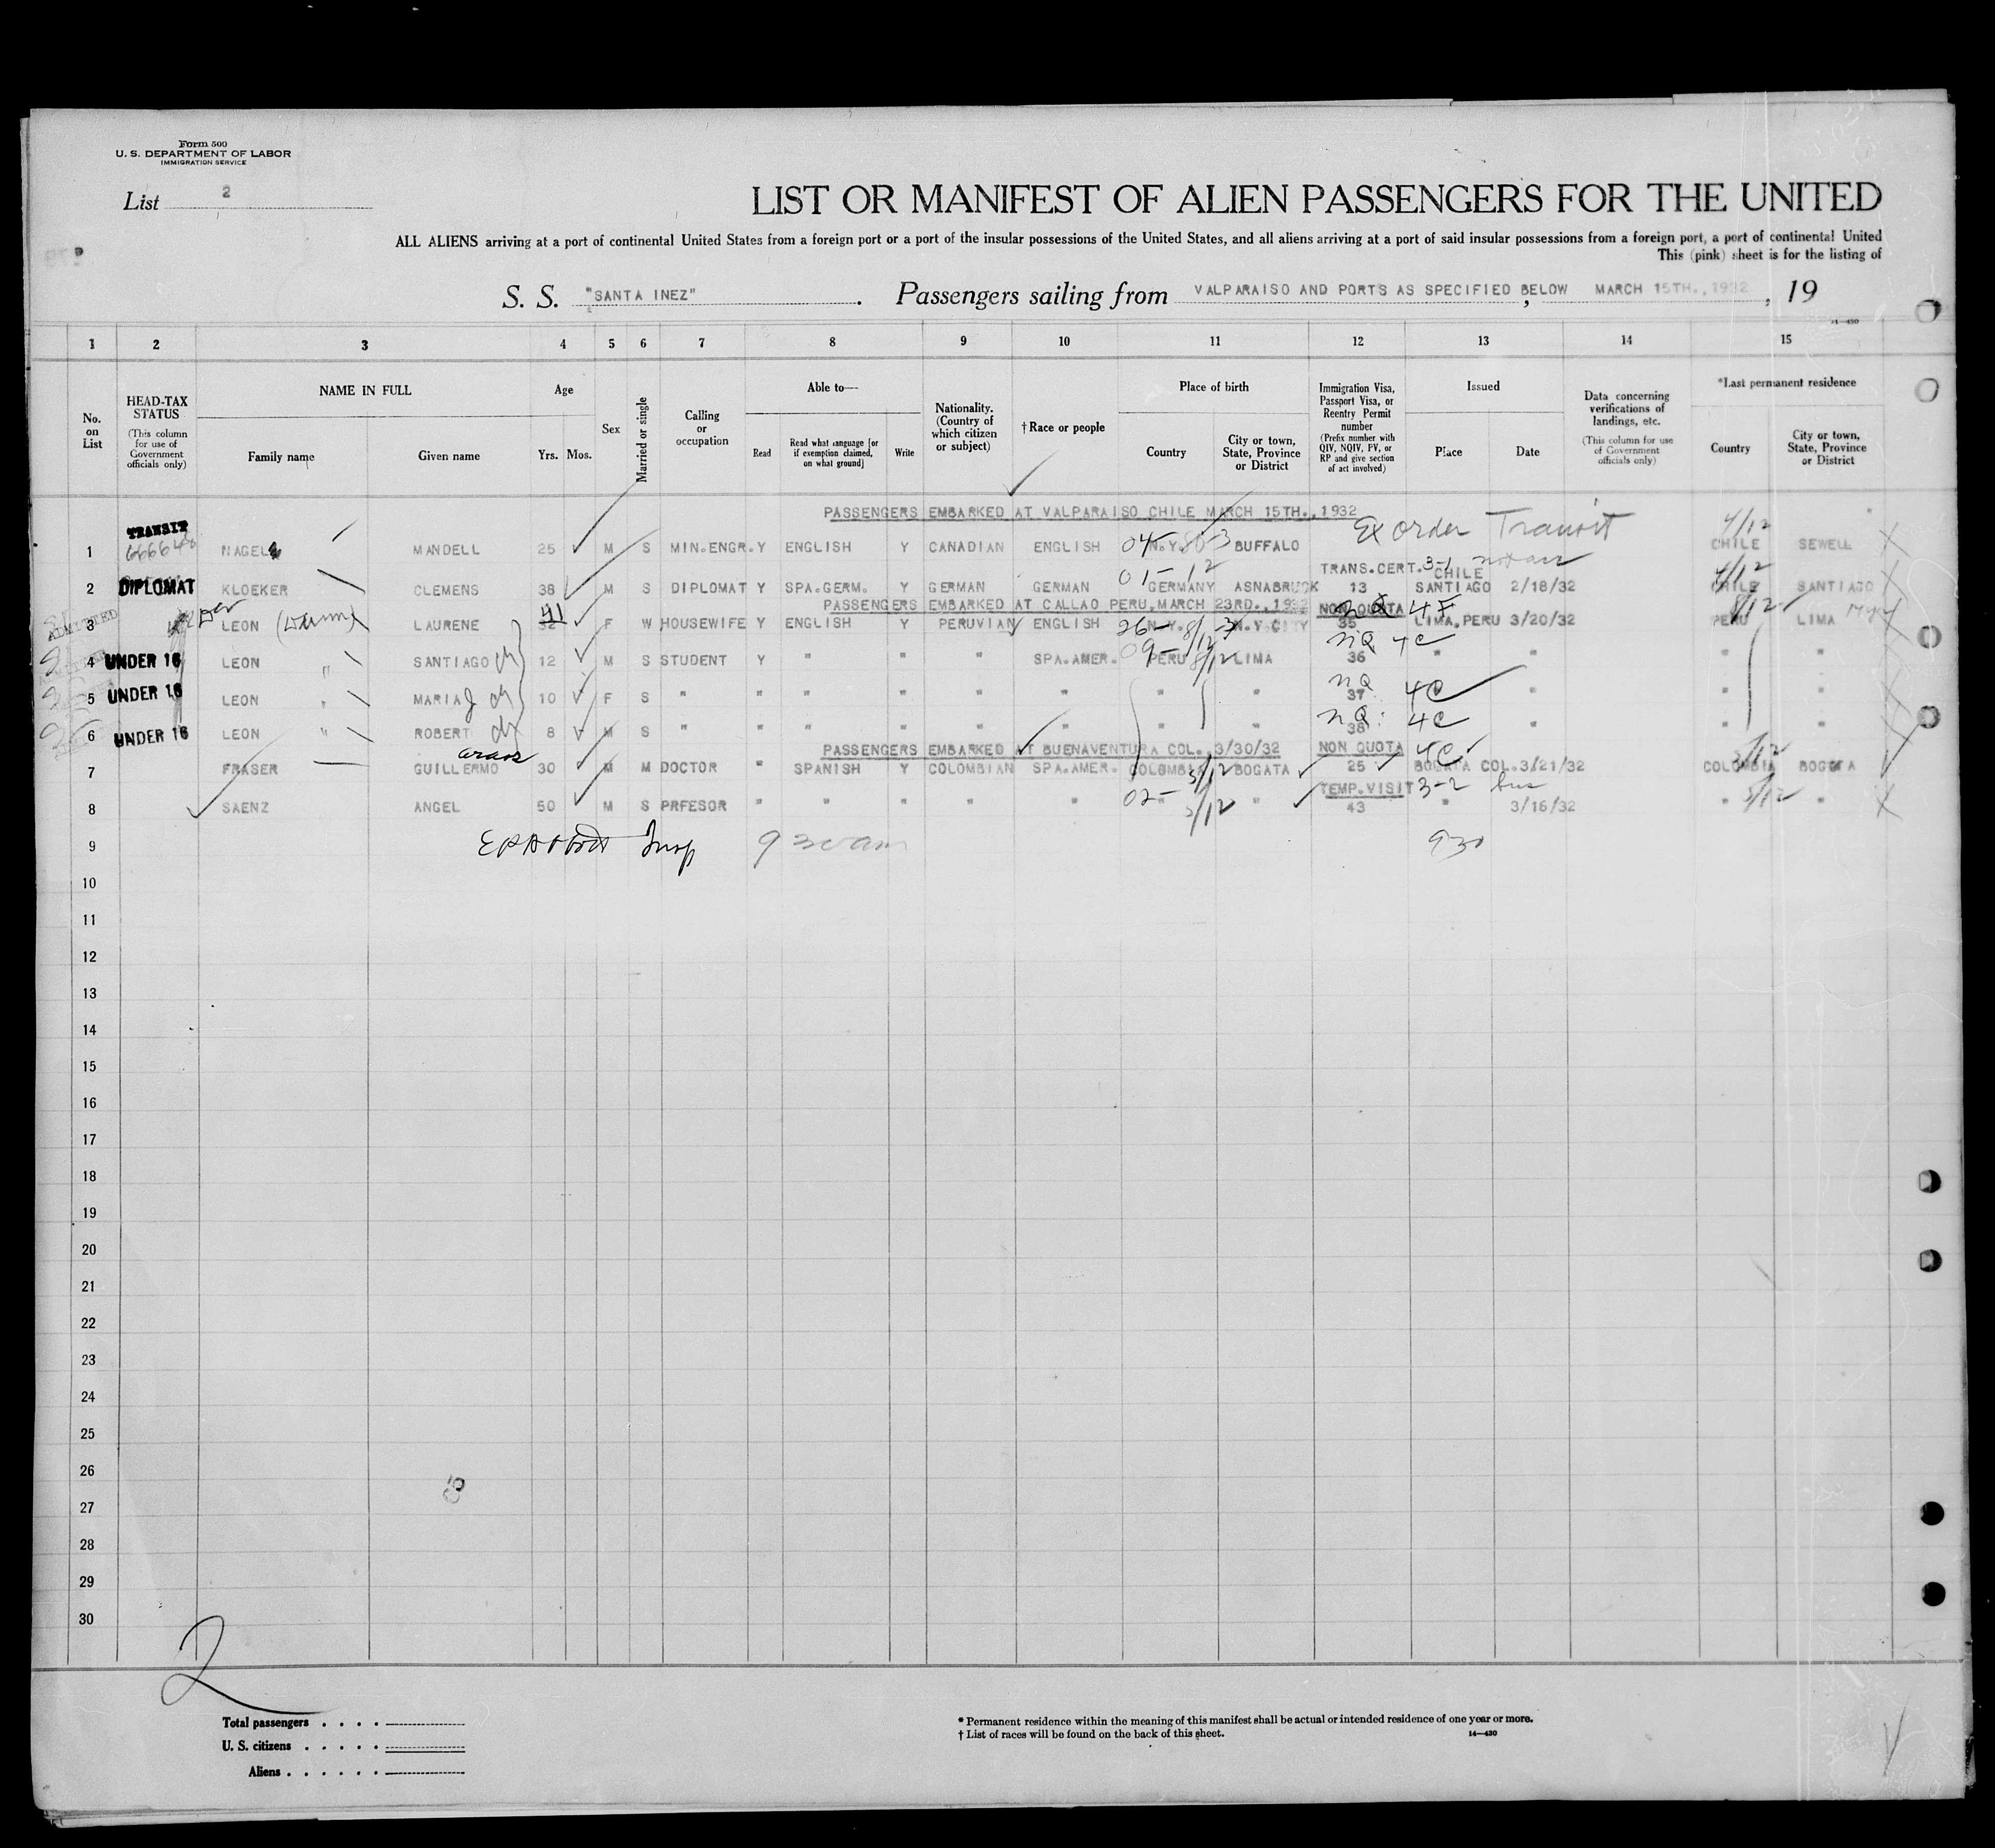 Form 500
U. S. DEPARTMENT OF LABOR
IMMIGRATION SERVICE
List 2
LIST OR MANIFEST OF ALIEN PASSENGERS FOR THE UNITED
ALL ALIENS arriving at a port of continental United States from a foreign port or a port of the insular possessions of the United States, and all aliens arriving at a port of said insular possessions from a foreign port, a port of continental United
This (pink) sheet is for the listing of
S. S. "SANTA INEZ" . Passengers sailing from VALPARAISO AND PORTS AS SPECIFIED BELOW , MARCH 15TH., 1932 , 19
14—430
1 2 3 4 5 6 7 8 9 10 11 12 13 14 15
No. on List
HEAD-TAX STATUS (This column for use of Government officials only)
NAME IN FULL
Family name Given name
Age
Yrs. Mos.
Sex
Married or single
Calling or occupation
Able to—
Read
Read what language [or if exemption claimed, on what ground]
Write
Nationality. (Country of which citizen or subject)
† Race or people
Place of birth
Country
City or town, State, Province or District
Immigration Visa, Passport Visa, or Reentry Permit number (Prefix number with QIV, NQIV, PV, or RP and give section of act involved)
Issued
Place Date
Data concerning verifications of landings, etc. (This column for use of Government officials only)
*Last permanent residence
Country
City or town, State, Province or District
PASSENGERS EMBARKED AT VALPARAISO CHILE MARCH 15TH., 1932
TRANSIT Ex order Transit 4/12
1 NAGEL MANDELL 25 M S MIN.ENGR. Y ENGLISH Y CANADIAN ENGLISH 04 N.Y. BUFFALO CHILE SEWELL
TRANS.CERT. 3-1 CHILE
2 DIPLOMAT KLOEKER CLEMENS 38 M S DIPLOMAT Y SPA.GERM. Y GERMAN GERMAN 01-12 GERMANY ASNABRUCK 13 SANTIAGO 2/18/32 4/12 CHILE SANTIAGO
PASSENGERS EMBARKED AT CALLAO PERU, MARCH 23RD., 1932 NON QUOTA 4F
ADMITTED
3 LEON LAURENE 32 41 F W HOUSEWIFE Y ENGLISH Y PERUVIAN ENGLISH 26- N.Y. N.Y CITY 35 LIMA, PERU 3/20/32 8/12 PERU LIMA
4 UNDER 16 LEON " SANTIAGO ch 12 M S STUDENT Y " " " SPA.AMER. 09- PERU 8/12 LIMA NQ 36 4C " " " "
5 UNDER 16 LEON " MARIA J ch 10 F S " " " " " " " " NQ 37 4C " " " "
6 UNDER 16 LEON " ROBERT ch 8 M S " " " " " " " " NQ 38 4C " " " "
PASSENGERS EMBARKED AT BUENAVENTURA COL. 3/30/32 NON QUOTA 4C
7 FRASER GUILLERMO 30 M M DOCTOR " SPANISH Y COLOMBIAN SPA.AMER. COLOMBIA BOGATA 25 BOGATA COL. 3/21/32 COLOMBIA BOGOTA
TEMP.VISIT 3-2 bus
8 SAENZ ANGEL 50 M S PRFESOR " " " " " 02- " " 43 " 3/16/32 " "
9 Insp 9 30 am 930
10
11
12
13
14
15
16
17
18
19
20
21
22
23
24
25
26
27
28
29
30
2
Total passengers
U. S. citizens
Aliens
* Permanent residence within the meaning of this manifest shall be actual or intended residence of one year or more.
† List of races will be found on the back of this sheet. 14—430